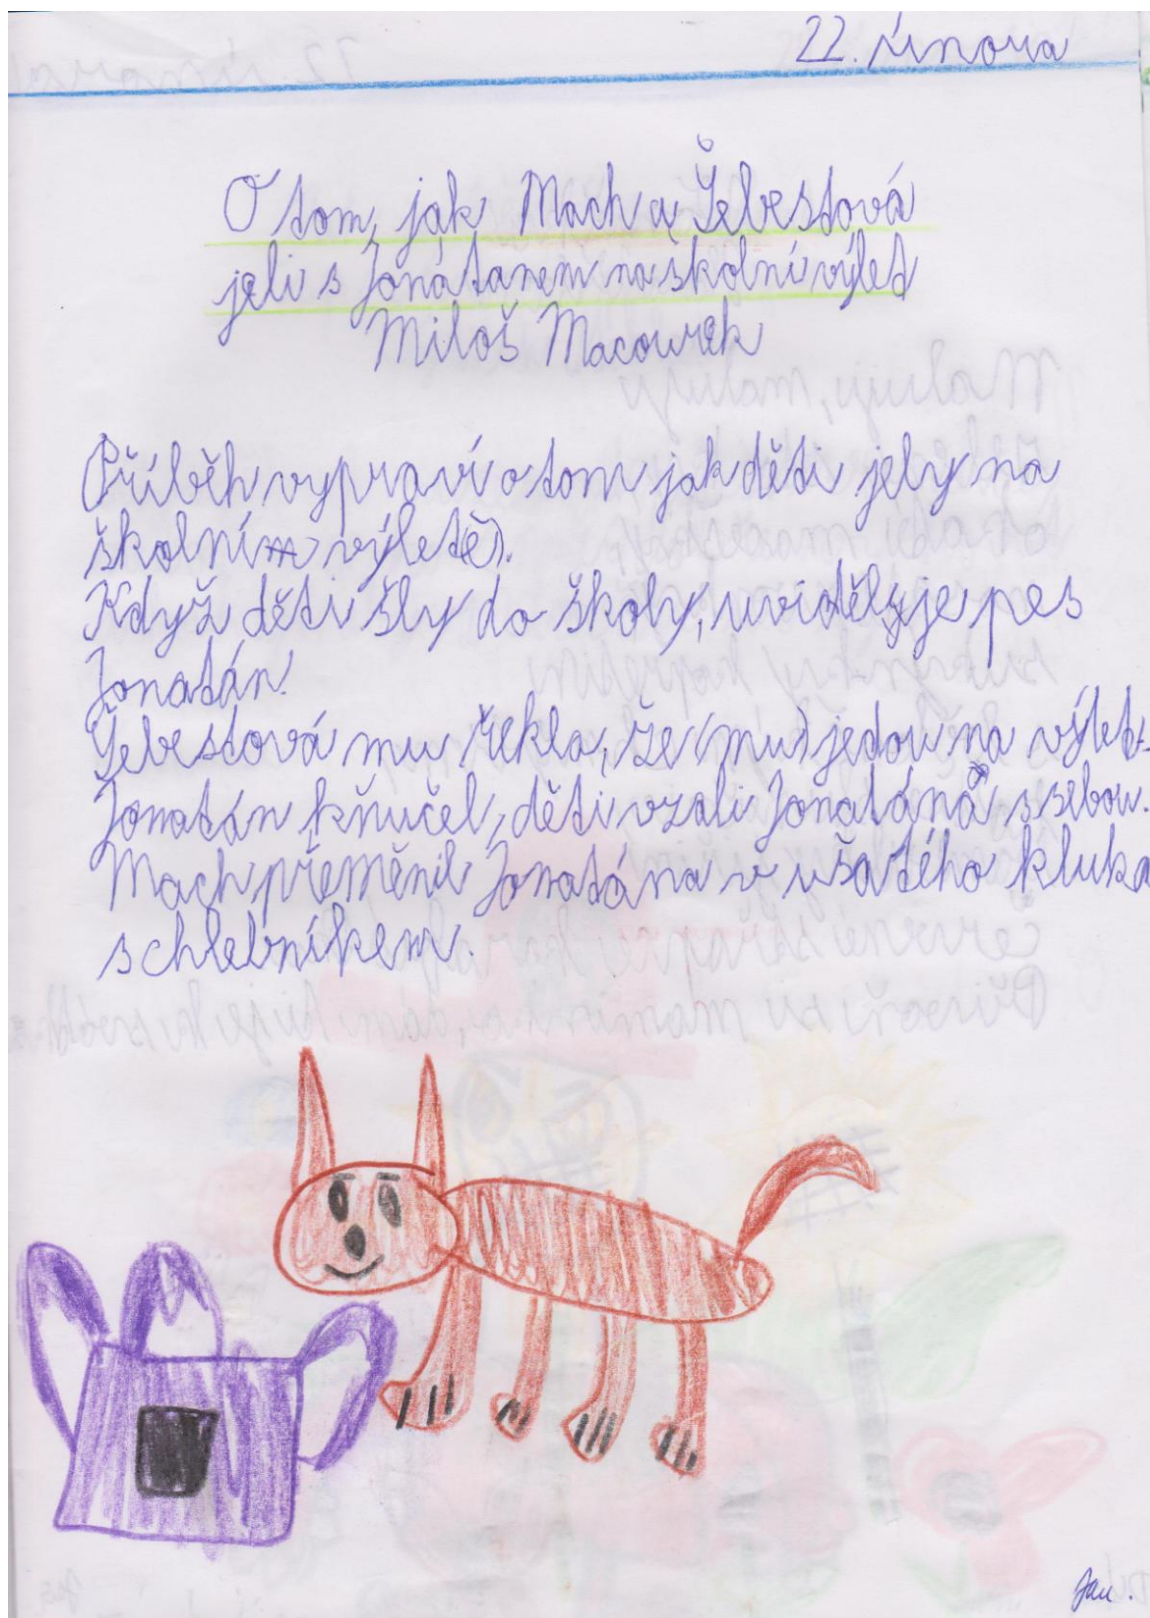 22. února
O tom, jak Mach a Šebestová
jeli s Jonátanem na školní výlet
Miloš Macourek
Příběh vypraví o tom jak děti jely na
školním výletě).
Když děti šly do školy, uviděl je pes
Jonatán.
Šebestová mu řekla, že (mu) jedou na výlet.
Jonatán kňučel, děti vzali Jonatána s sebou.
Mach přeměnil Jonatána v ušatého kluka
s chlebníkem.